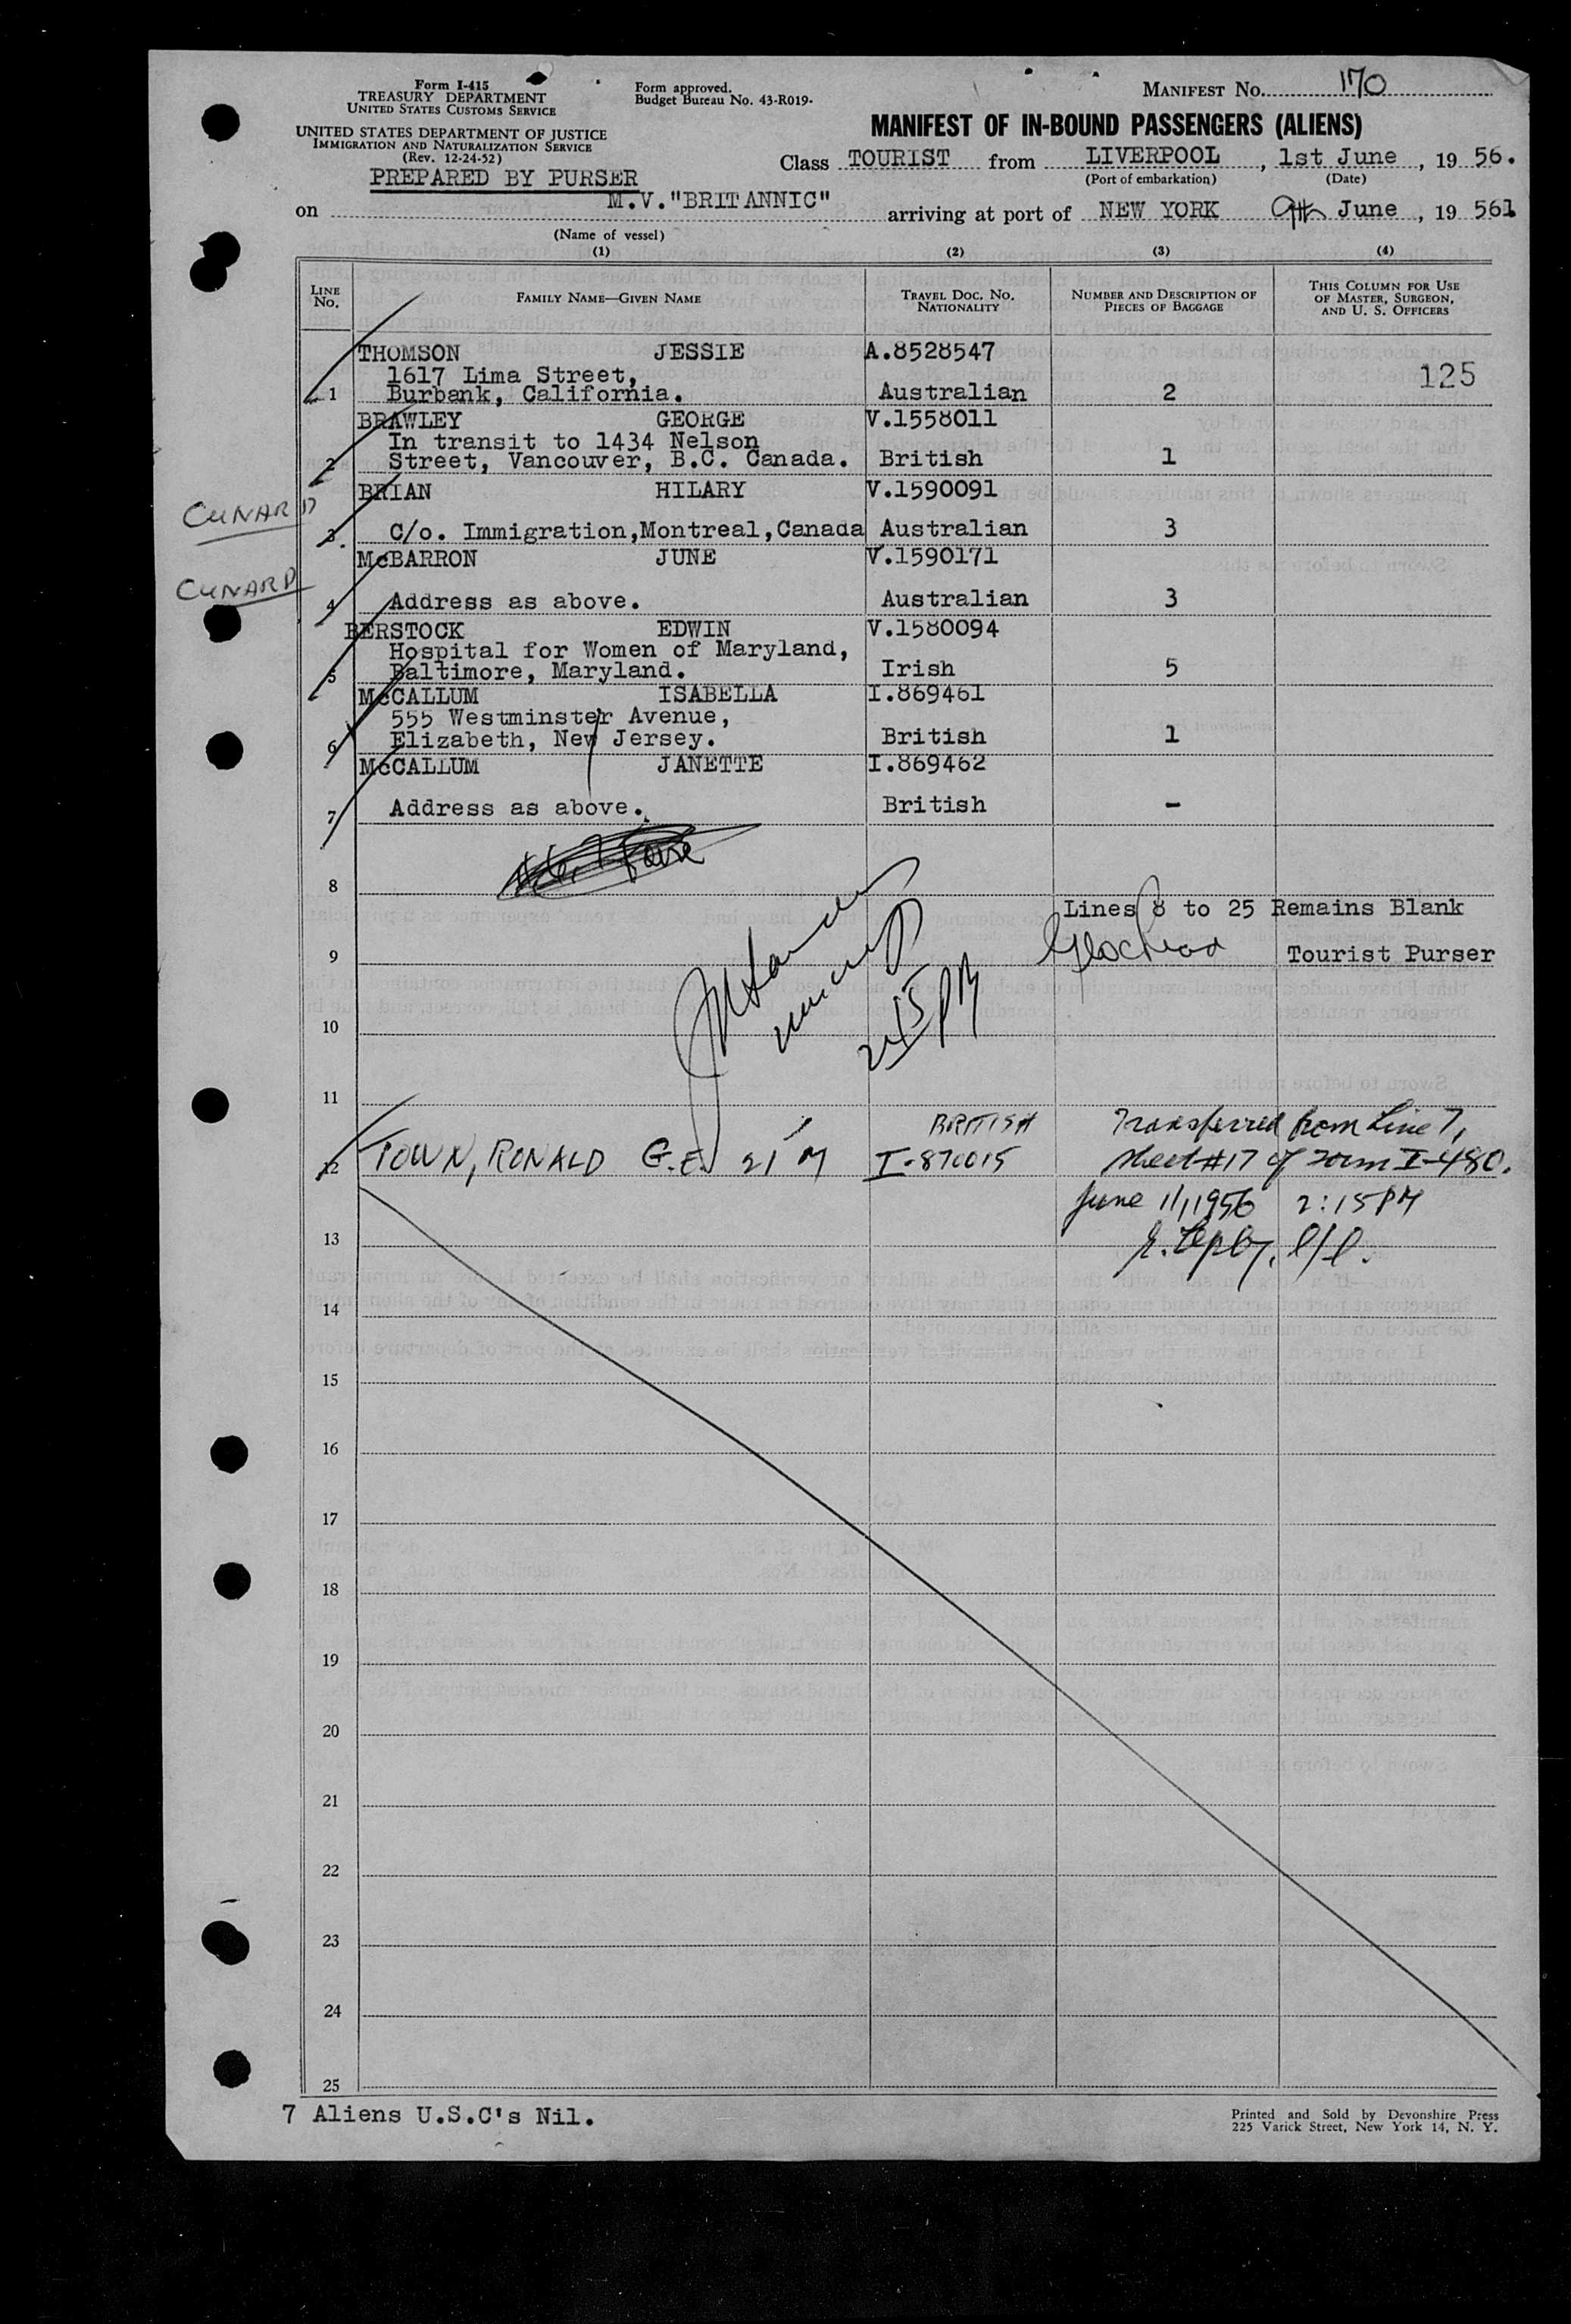 Form I-415
TREASURY DEPARTMENT
UNITED STATES CUSTOMS SERVICE
UNITED STATES DEPARTMENT OF JUSTICE
IMMIGRATION AND NATURALIZATION SERVICE
(Rev. 12-24-52)
PREPARED BY PURSER
Form approved.
Budget Bureau No. 43-R019.
MANIFEST NO. 170
MANIFEST OF IN-BOUND PASSENGERS (ALIENS)
Class TOURIST from LIVERPOOL, 1st June, 19 56.
(Port of embarkation) (Date)
on M.V. "BRITANNIC" arriving at port of NEW YORK 9th June, 19 561
(Name of vessel)
(1) (2) (3) (4)
LINE NO. FAMILY NAME—GIVEN NAME TRAVEL DOC. NO. NATIONALITY NUMBER AND DESCRIPTION OF PIECES OF BAGGAGE THIS COLUMN FOR USE OF MASTER, SURGEON, AND U. S. OFFICERS
THOMSON JESSIE A.8528547
1617 Lima Street,
1 Burbank, California. Australian 2 125
BRAWLEY GEORGE V.1558011
In transit to 1434 Nelson
2 Street, Vancouver, B.C. Canada. British 1
BRIAN HILARY V.1590091
CUNARD
3 C/o. Immigration,Montreal,Canada Australian 3
McBARRON JUNE V.1590171
CUNARD
4 Address as above. Australian 3
BERSTOCK EDWIN V.1580094
Hospital for Women of Maryland,
5 Baltimore, Maryland. Irish 5
McCALLUM ISABELLA I.869461
555 Westminster Avenue,
6 Elizabeth, New Jersey. British 1
McCALLUM JANETTE I.869462
7 Address as above. British -
8
Lines 8 to 25 Remains Blank
9 Tourist Purser
215 PM
10
11
BRITISH Transferred from Line 7,
12 TOWN, RONALD G.E. 21 M I-870015 sheet #17 of Form I-480.
June 11, 1956 2:15 PM
13
14
15
16
17
18
19
20
21
22
23
24
25
7 Aliens U.S.C's Nil.
Printed and Sold by Devonshire Press
225 Varick Street, New York 14, N. Y.